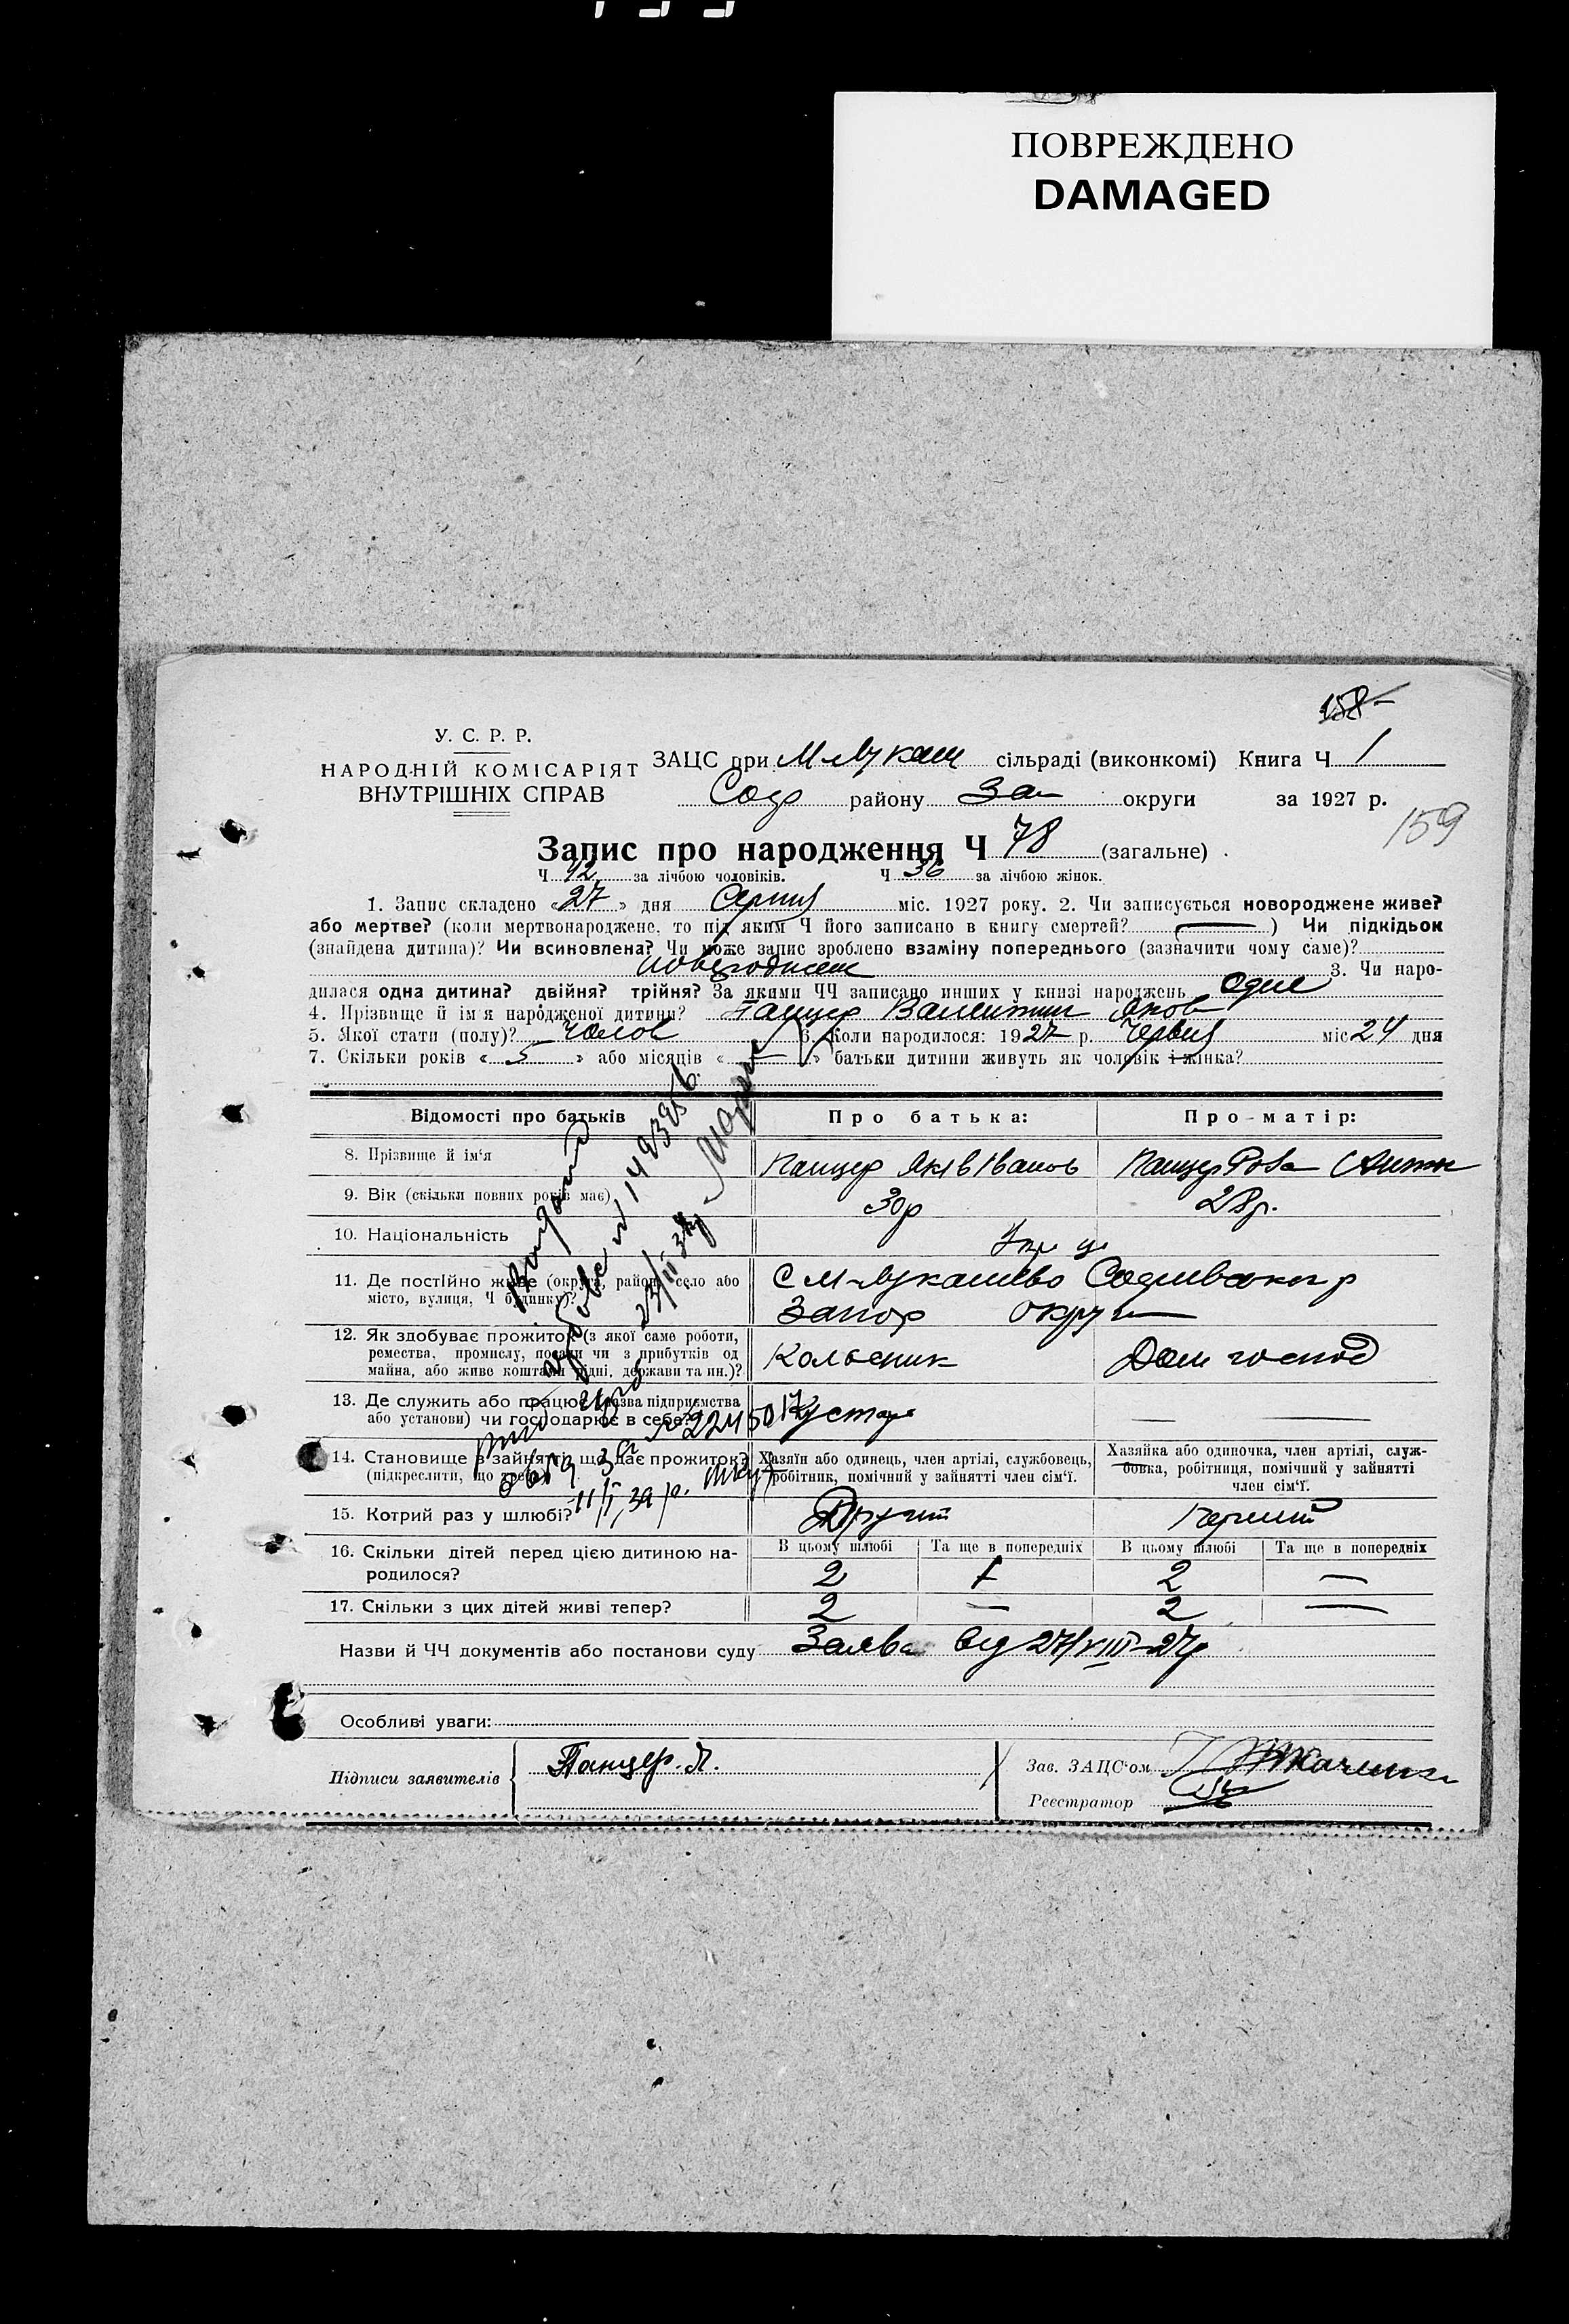 ПОВРЕЖДЕНО
DAMAGED
158
У. С. Р. Р.
НАРОДНІЙ КОМІСАРІЯТ
ВНУТРІШНІХ СПРАВ
ЗАЦС при М-Лукаш сільраді (виконкомі) Книга Ч 1
району Зап округи за 1927 р.
159
Запис про народження Ч 78 (загальне)
Ч 42 за лічбою чоловіків. Ч 36 за лічбою жінок.
1. Запис складено «27» дня Серпня міс. 1927 року. 2. Чи записується новороджене живе?
або мертве? (коли мертвонароджене, то під яким Ч його записано в книгу смертей? — ) Чи підкідьок
(знайдена дитина)? Чи всиновлена? Чи може запис зроблено взаміну попереднього (зазначити чому саме)?
3. Чи наро-
дилася одна дитина? двійня? трійня? За якими ЧЧ записано инших у книзі народжень Одне
4. Прізвище й ім'я народженої дитини? Панцер Валентин Яков
5. Якої стати (полу)? Чолов 6. Коли народилося: 1927 р. Червня міс 24 дня
7. Скільки років «5» або місяців «—» батьки дитини живуть як чоловік і жінка?
Відомості про батьків Про батька: Про матір:
8. Прізвище й ім'я Панцер Яків Іванов Панцер Роза
9. Вік (скільки повних років має) 30р 28р.
10. Національність
11. Де постійно живе (округа, район, село або С М-Лукашево
місто, вулиця, Ч будинку)? Запор округи
12. Як здобуває прожиток (з якої саме роботи,
ремества, промислу, посади чи з прибутків од
майна, або живе коштами рідні, держави та ин.)? Кольсник Дом господ
13. Де служить або працює (назва підприємства
або установи) чи господарює в себе? Кустарь — —
14. Становище в зайнятті, що дає прожиток?
(підкреслити, що треба)
Хазяїн або одинець, член артілі, службовець,
робітник, помічний у зайнятті член сім'ї.
Хазяйка або одиночка, член артілі, служ-
бовка, робітниця, помічний у зайнятті
член сім'ї.
15. Котрий раз у шлюбі? Другий Перший
16. Скільки дітей перед цією дитиною на-
родилося?
В цьому шлюбі Та ще в попередніх В цьому шлюбі Та ще в попередніх
2 1 2 —
17. Скільки з цих дітей живі тепер? 2 — 2 —
Назви й ЧЧ документів або постанови суду Заява від 27/VIII-27р
Особливі уваги:
Підписи заявителів Панцер. Я.
Зав. ЗАЦС'ом
Реєстратор